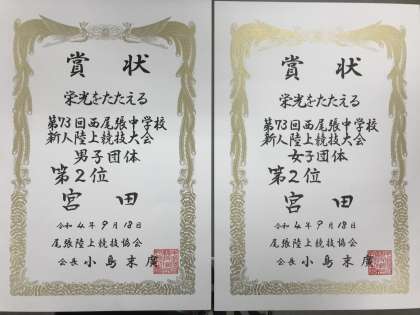 賞状
栄光をたたえる
第73回西尾張中学校
新人陸上競技大会
男子団体
第2位
宮田
令和4年9月18日
尾張陸上競技協会
会長 小島末廣
賞状
栄光をたたえる
第73回西尾張中学校
新人陸上競技大会
女子団体
第2位
宮田
令和4年9月18日
尾張陸上競技協会
会長 小島末廣